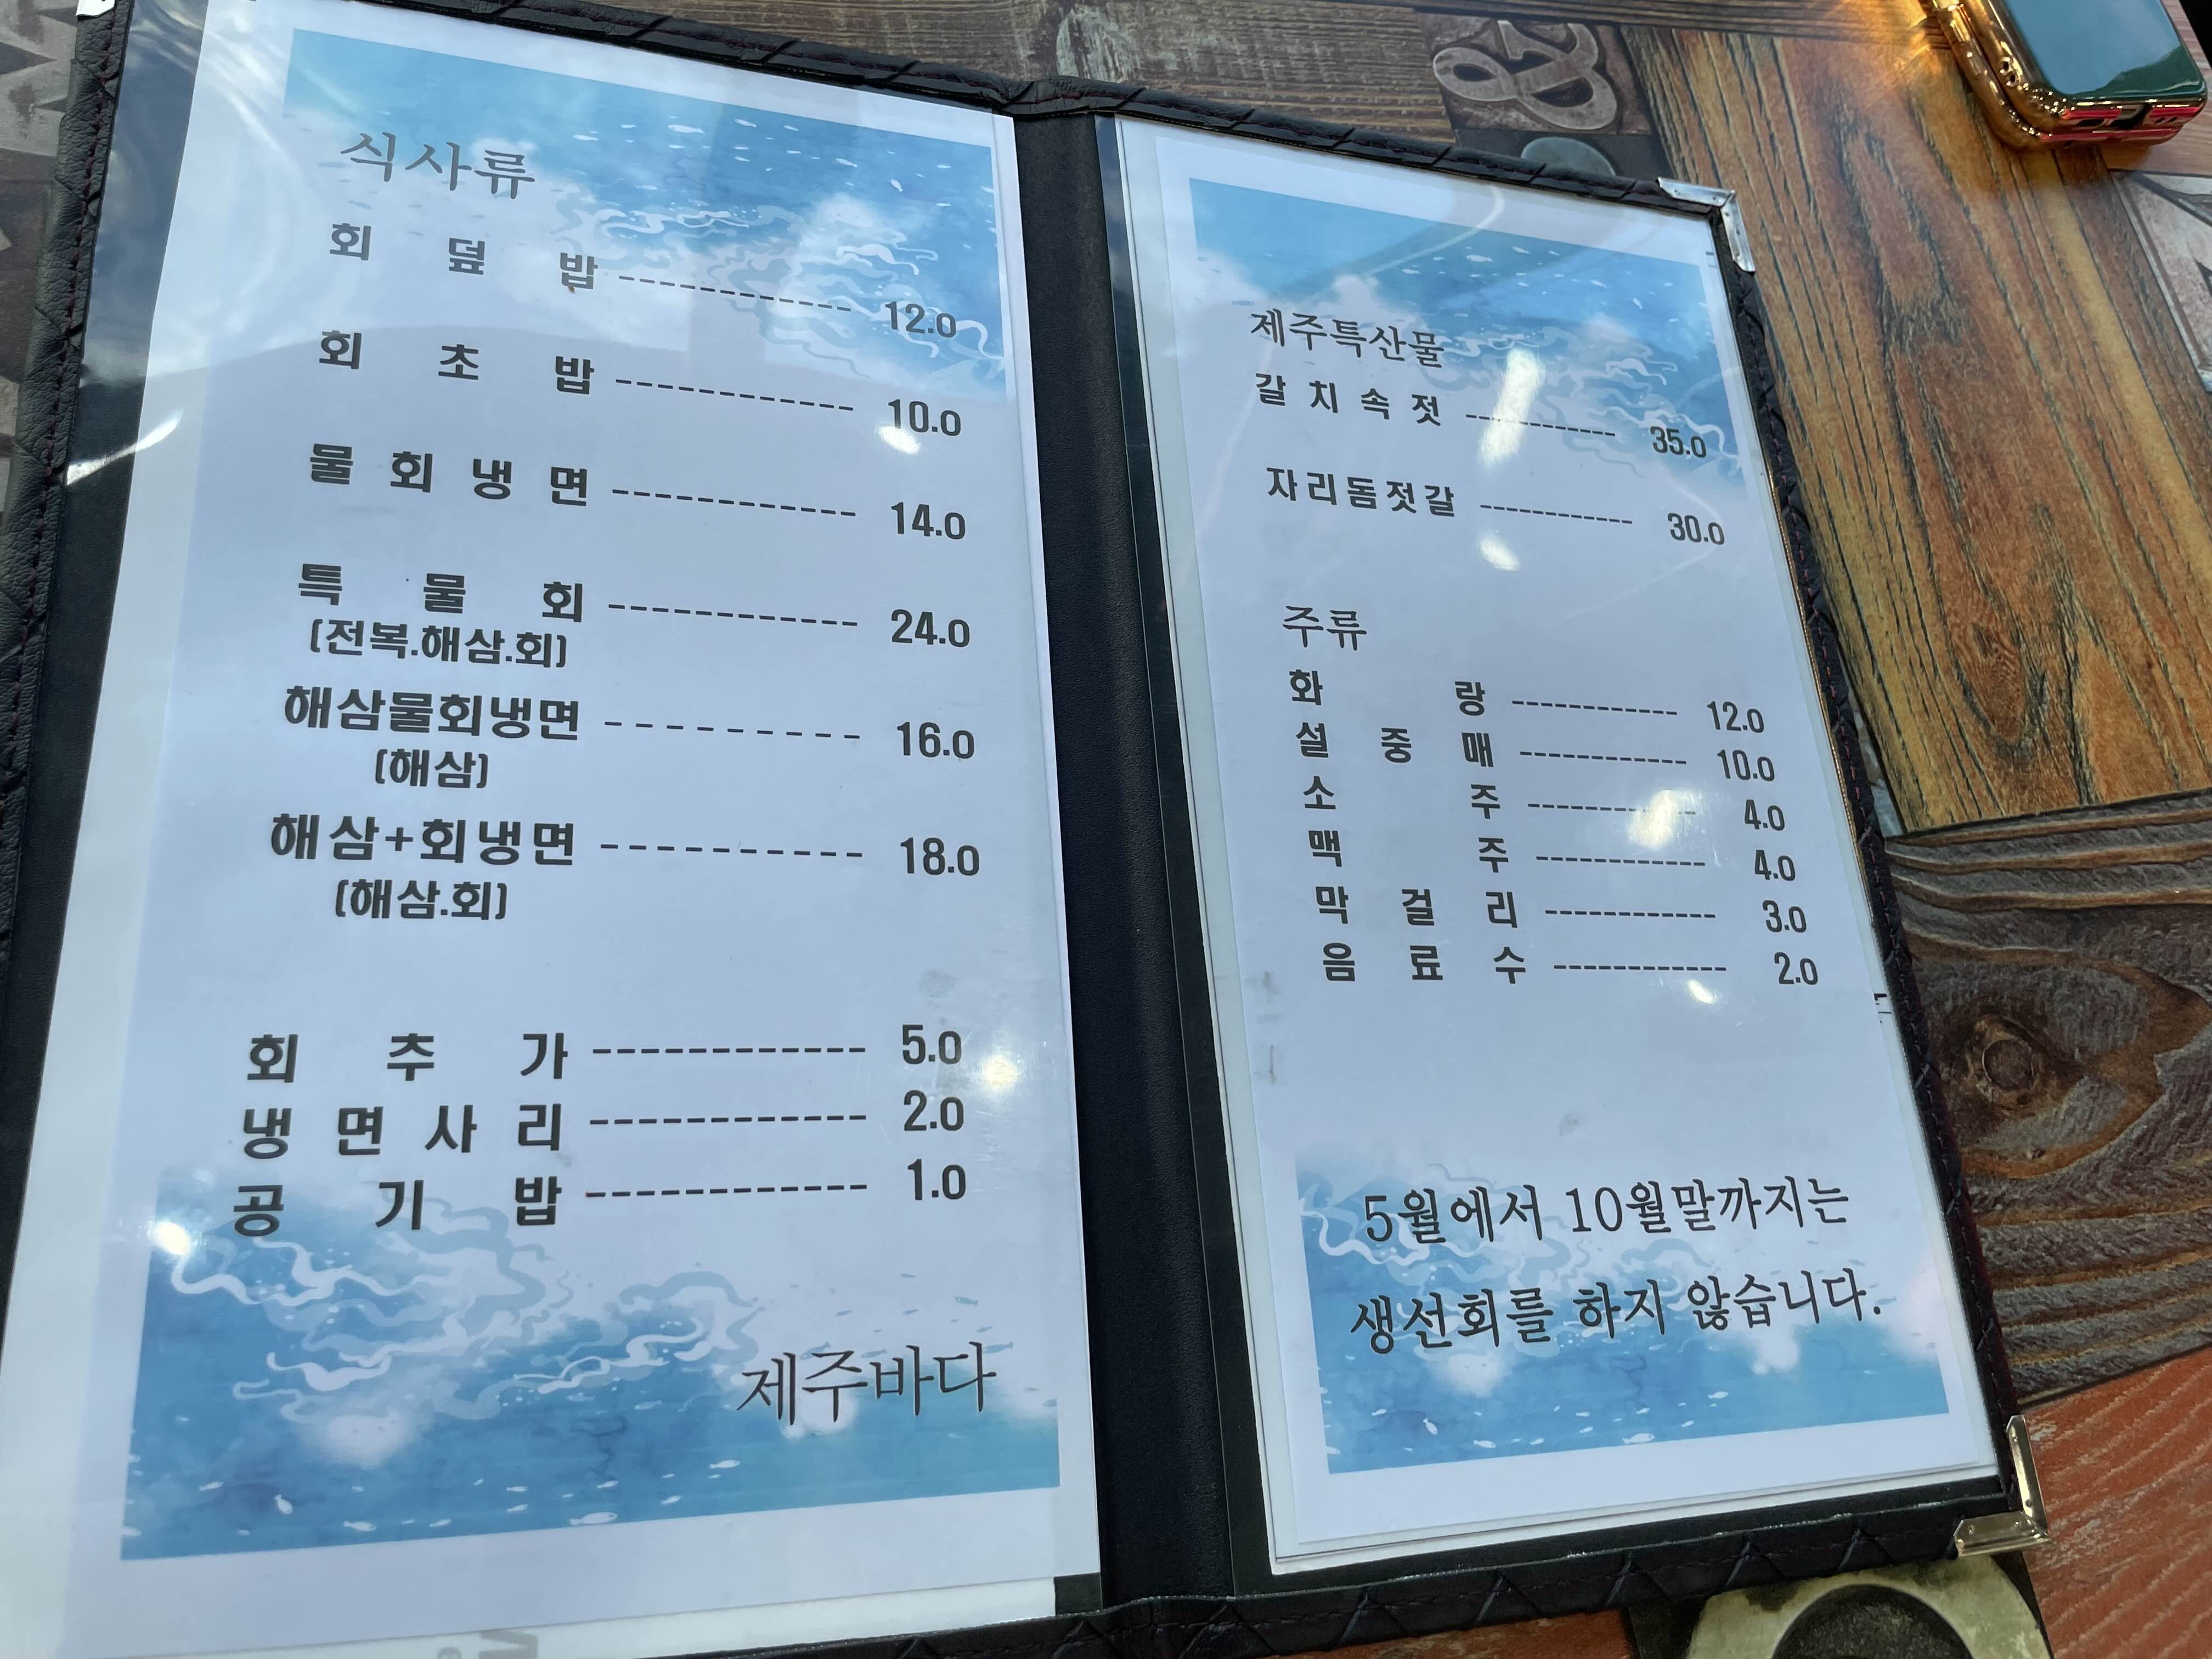 식사류
회 덮 밥 ------------ 12.0
회 초 밥 ------------ 10.0
물 회 냉 면 ------------ 14.0
특 물 회 ------------ 24.0
(전복.해삼.회)
해삼물회냉면 --------- 16.0
(해삼)
해삼+회냉면 ---------- 18.0
(해삼.회)
회 추 가 ------------ 5.0
냉 면 사 리 ------------ 2.0
공 기 밥 ------------ 1.0
제주바다
제주특산물
갈 치 속 젓 ------------ 35.0
자리돔젓갈 ------------ 30.0
주류
화 랑 ------------ 12.0
설 중 매 ------------ 10.0
소 주 ------------ 4.0
맥 주 ------------ 4.0
막 걸 리 ------------ 3.0
음 료 수 ------------ 2.0
5월에서 10월말까지는
생선회를 하지 않습니다.
&